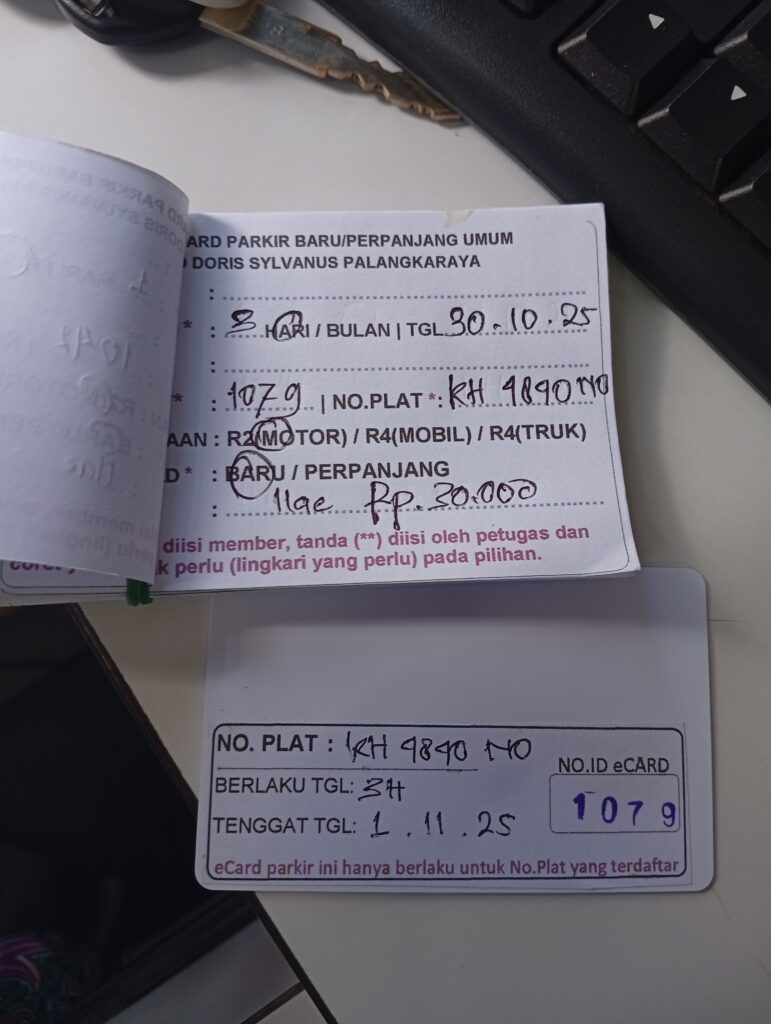 ARD PARKIR BARU/PERPANJANG UMUM
DORIS SYLVANUS PALANGKARAYA
:
* : 3 HARI / BULAN | TGL 30.10.25
:
* : 1079 | NO.PLAT *: KH 4890 NO
AAN : R2(MOTOR) / R4(MOBIL) / R4(TRUK)
D * : BARU / PERPANJANG
: Rp. 30.000
diisi member, tanda (**) diisi oleh petugas dan
k perlu (lingkari yang perlu) pada pilihan.
NO. PLAT : KH 4890 NO
BERLAKU TGL: 3H
TENGGAT TGL: 1.11.25
NO.ID eCARD
1079
eCard parkir ini hanya berlaku untuk No.Plat yang terdaftar